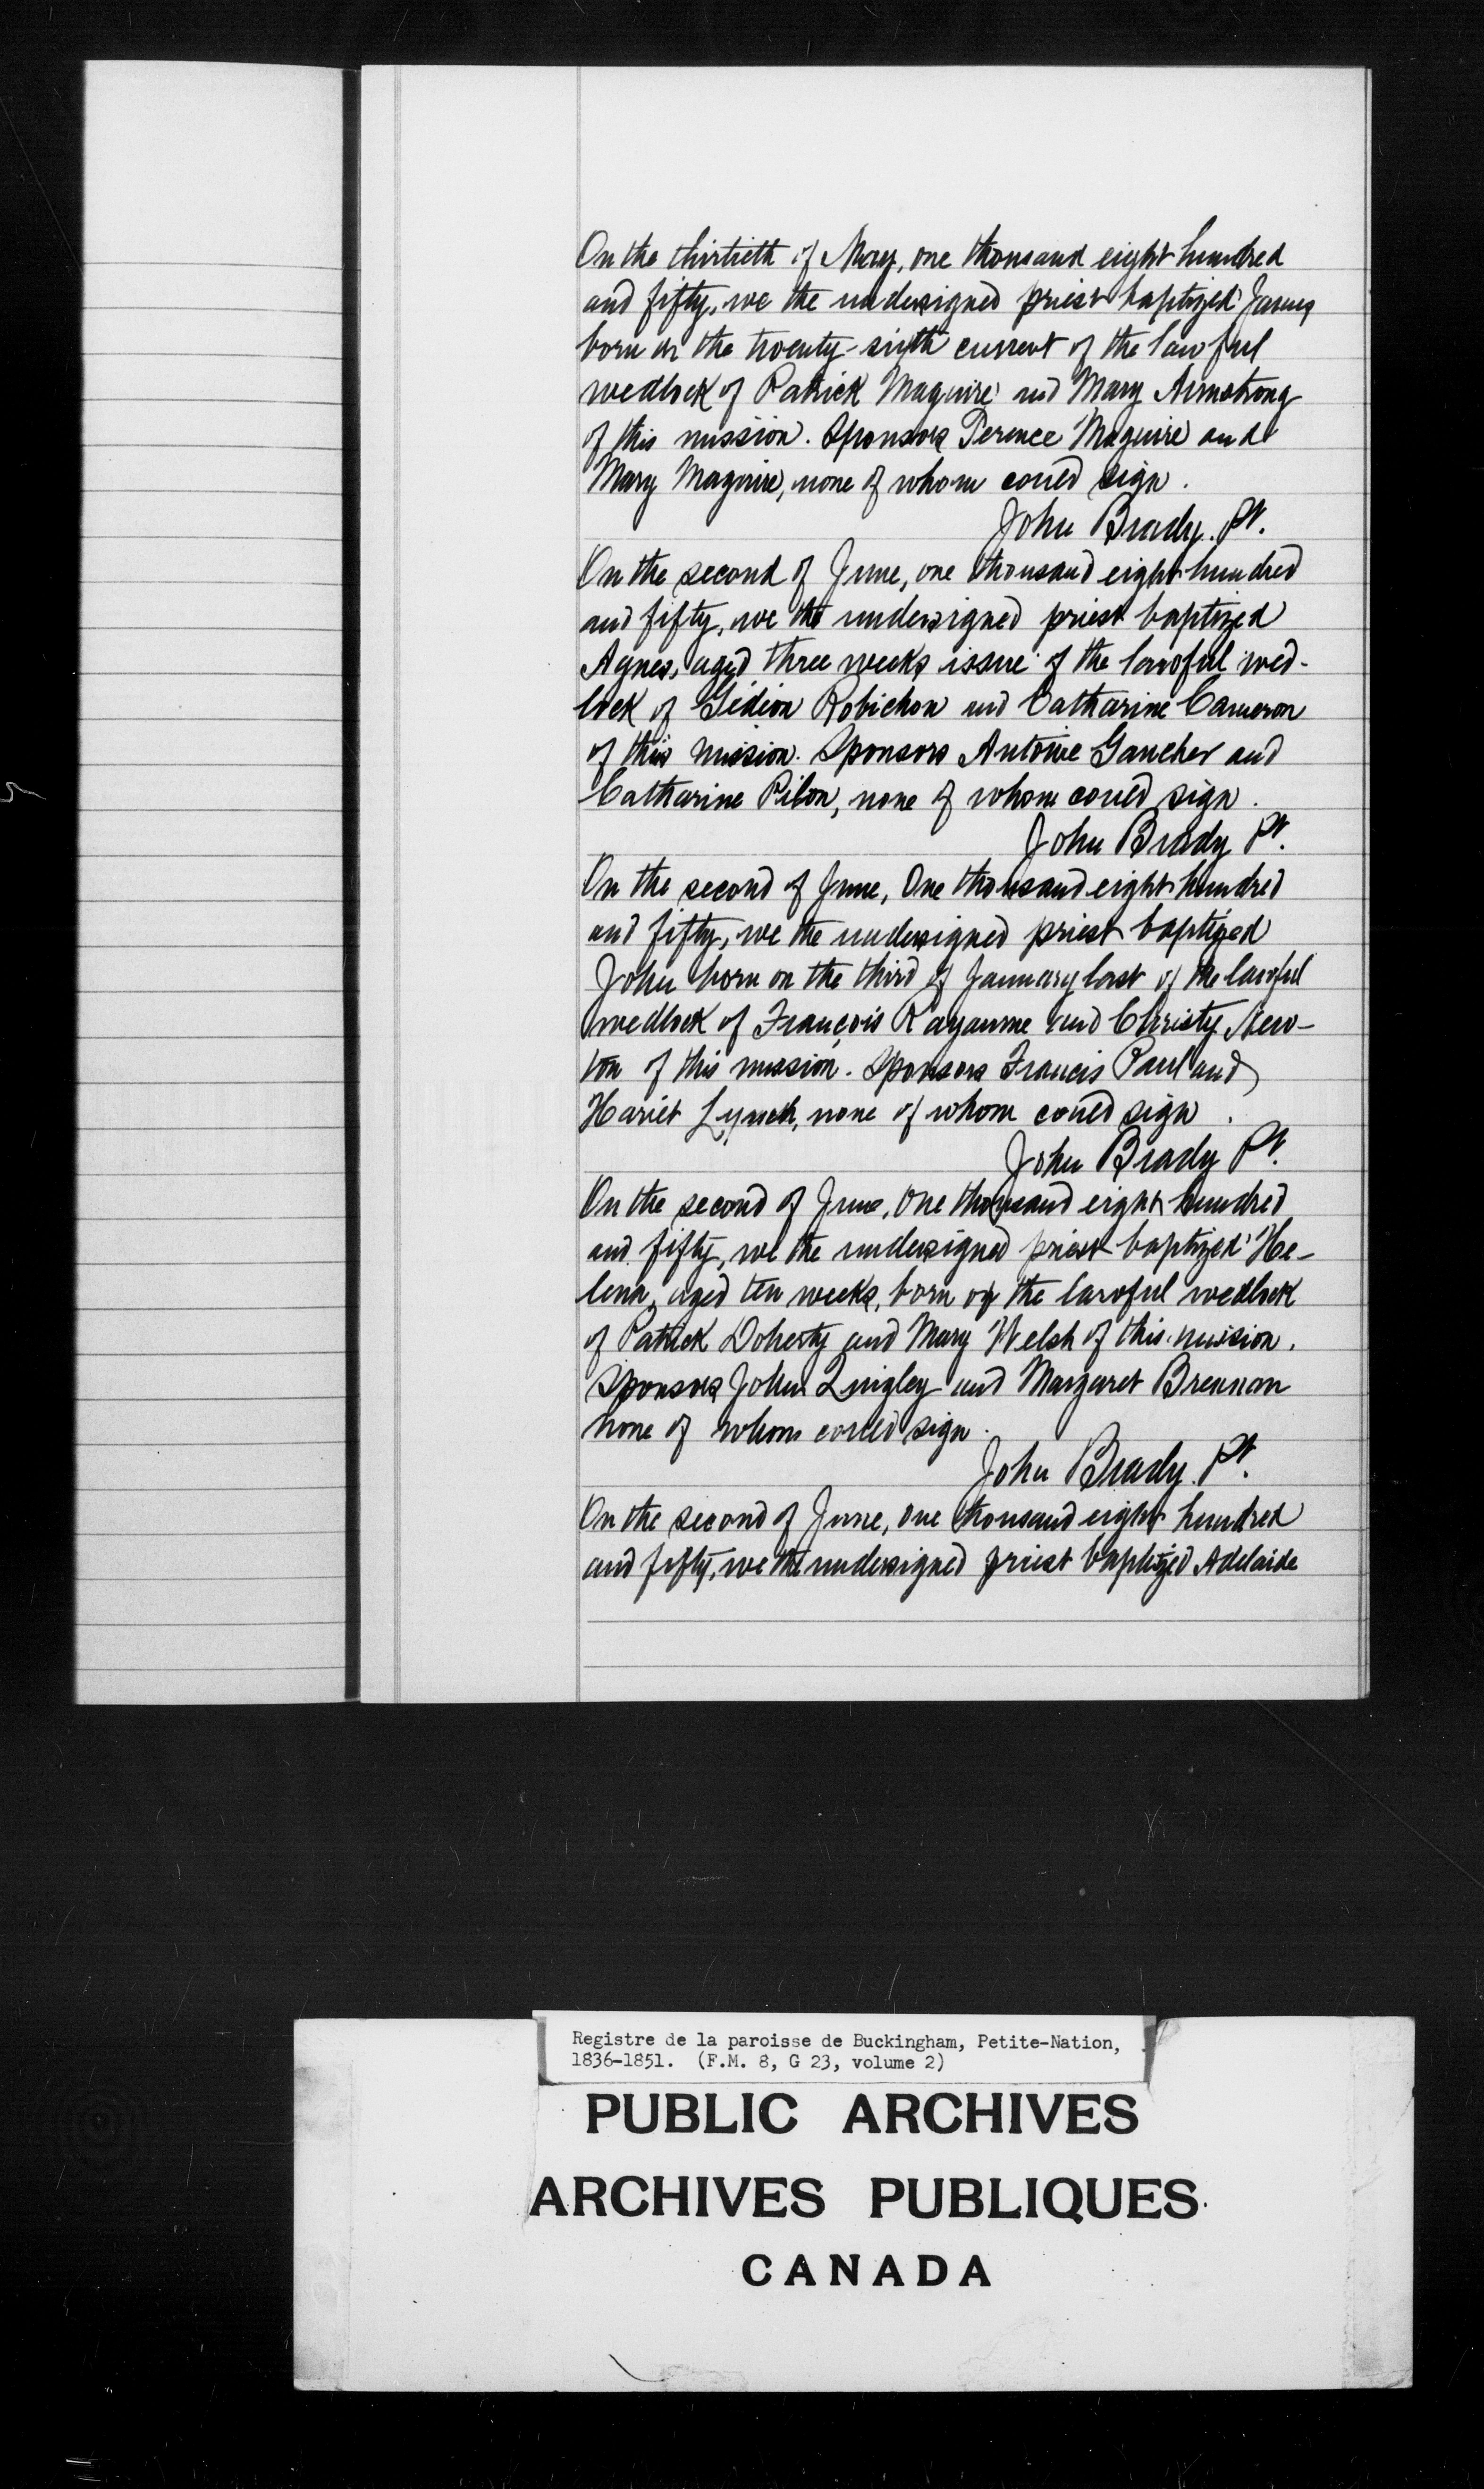 On the thirtieth of May, one thousand eight hundred
and fifty, we the undersigned priest baptized James
born on the twenty-sixth current of the lawful
wedlock of Patrick Maguire and Mary Armstrong
of this mission. Sponsors Terence Maguire and
Mary Maguire, none of whom could sign.
John Brady. Pt.
On the second of June, one thousand eight hundred
and fifty, we the undersigned priest baptized
Agnes, aged three weeks issue of the lawful wed-
lock of Gédéon Robichon and Catharine Cameron
of this mission. Sponsors Antoine Gaucher and
Catharine Pilon, none of whom could sign.
John Brady Pt.
On the second of June, One thousand eight hundred
and fifty, we the undersigned priest baptized
John born on the third of January last of the lawful
wedlock of François Rayaume and Christy New-
ton of this mission. Sponsors Francis Paul and
Hariet Lynch, none of whom could sign.
John Brady Pt.
On the second of June, One thousand eight hundred
and fifty, we the undersigned priest baptized He-
lena, aged ten weeks, born of the lawful wedlock
of Patrick Doherty and Mary Welsh of this mission.
Sponsors John Quigley and Margaret Brennan
none of whom could sign.
John Brady. Pt.
On the second of June, one thousand eight hundred
and fifty, we the undersigned priest baptized Adelaide
Registre de la paroisse de Buckingham, Petite-Nation,
1836-1851. (F.M. 8, G 23, volume 2)
PUBLIC ARCHIVES
ARCHIVES PUBLIQUES
CANADA